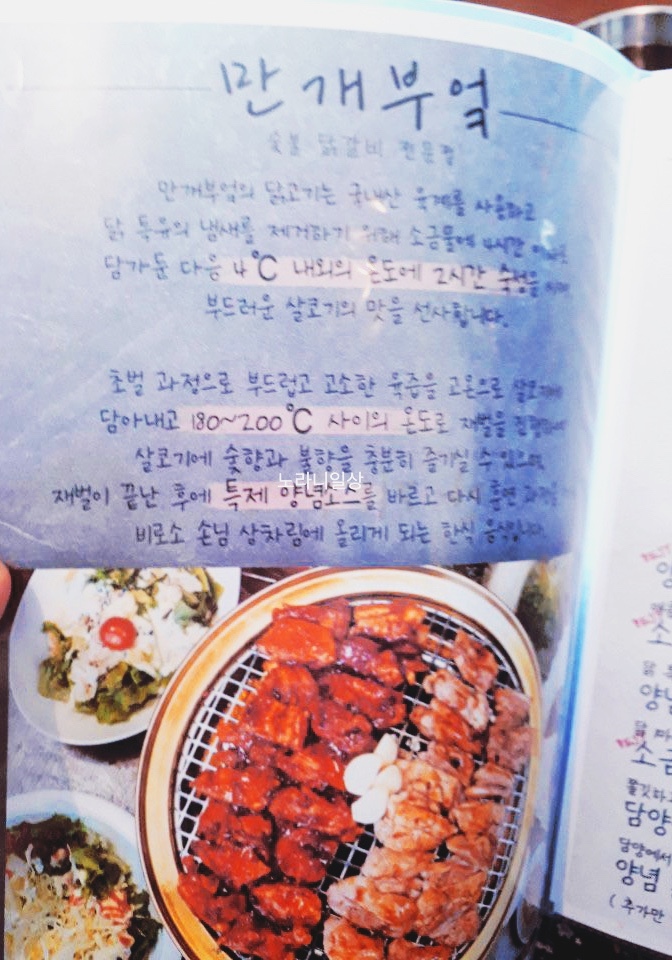 만개부엌
숯불 닭갈비 전문점
만개부엌의 닭고기는 국내산 육계를 사용하고
닭 특유의 냄새를 제거하기 위해 소금물에 4시간
담가둔 다음 4℃ 내외의 온도에 2시간 숙성을
부드러운 살코기의 맛을 선사합니다.
초벌 과정으로 부드럽고 고소한 육즙을 고온으로
담아내고 180~200℃ 사이의 온도로 재벌을
살코기에 숯향과 불향을 충분히 즐기실 수 있으며
노라니일상
재벌이 끝난 후에 특제 양념소스를 바르고 다시 훈연
비로소 손님 상차림에 올리게 되는 한식 음식입니다.
양념
소금
담양
담양에서
양념
( 추가만